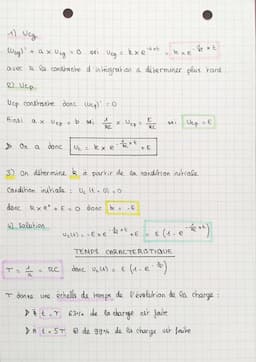 1) Ucg.
(Ucg)' + a x Ucg = 0 ssi Ucg = k x e^(-axt) = k x e^(-1/RC x t)
avec k la constante d'intégration à déterminer plus tard
2) Ucp.
Ucp constante donc (Ucp)' = 0
Ainsi a x Ucp = b ssi 1/RC x Ucp = E/RC ssi Ucp = E
On a donc Uc = k x e^(-1/RC x t) + E
3) On détermine k à partir de la condition initiale
Condition initiale : Uc (t=0) = 0
donc k x e° + E = 0 donc k = -E
4) Solution
uc(t) = -E x e^(-1/RC x t) + E = E (1 - e^(-1/RC x t))
TEMPS CARACTERISTIQUE
τ = 1/a = RC donc uc(t) = E (1 - e^(-t/τ))
τ donne une échelle de temps de l'évolution de la charge :
à t = τ 63% de la charge est faite
à t = 5τ 99% de la charge est faite